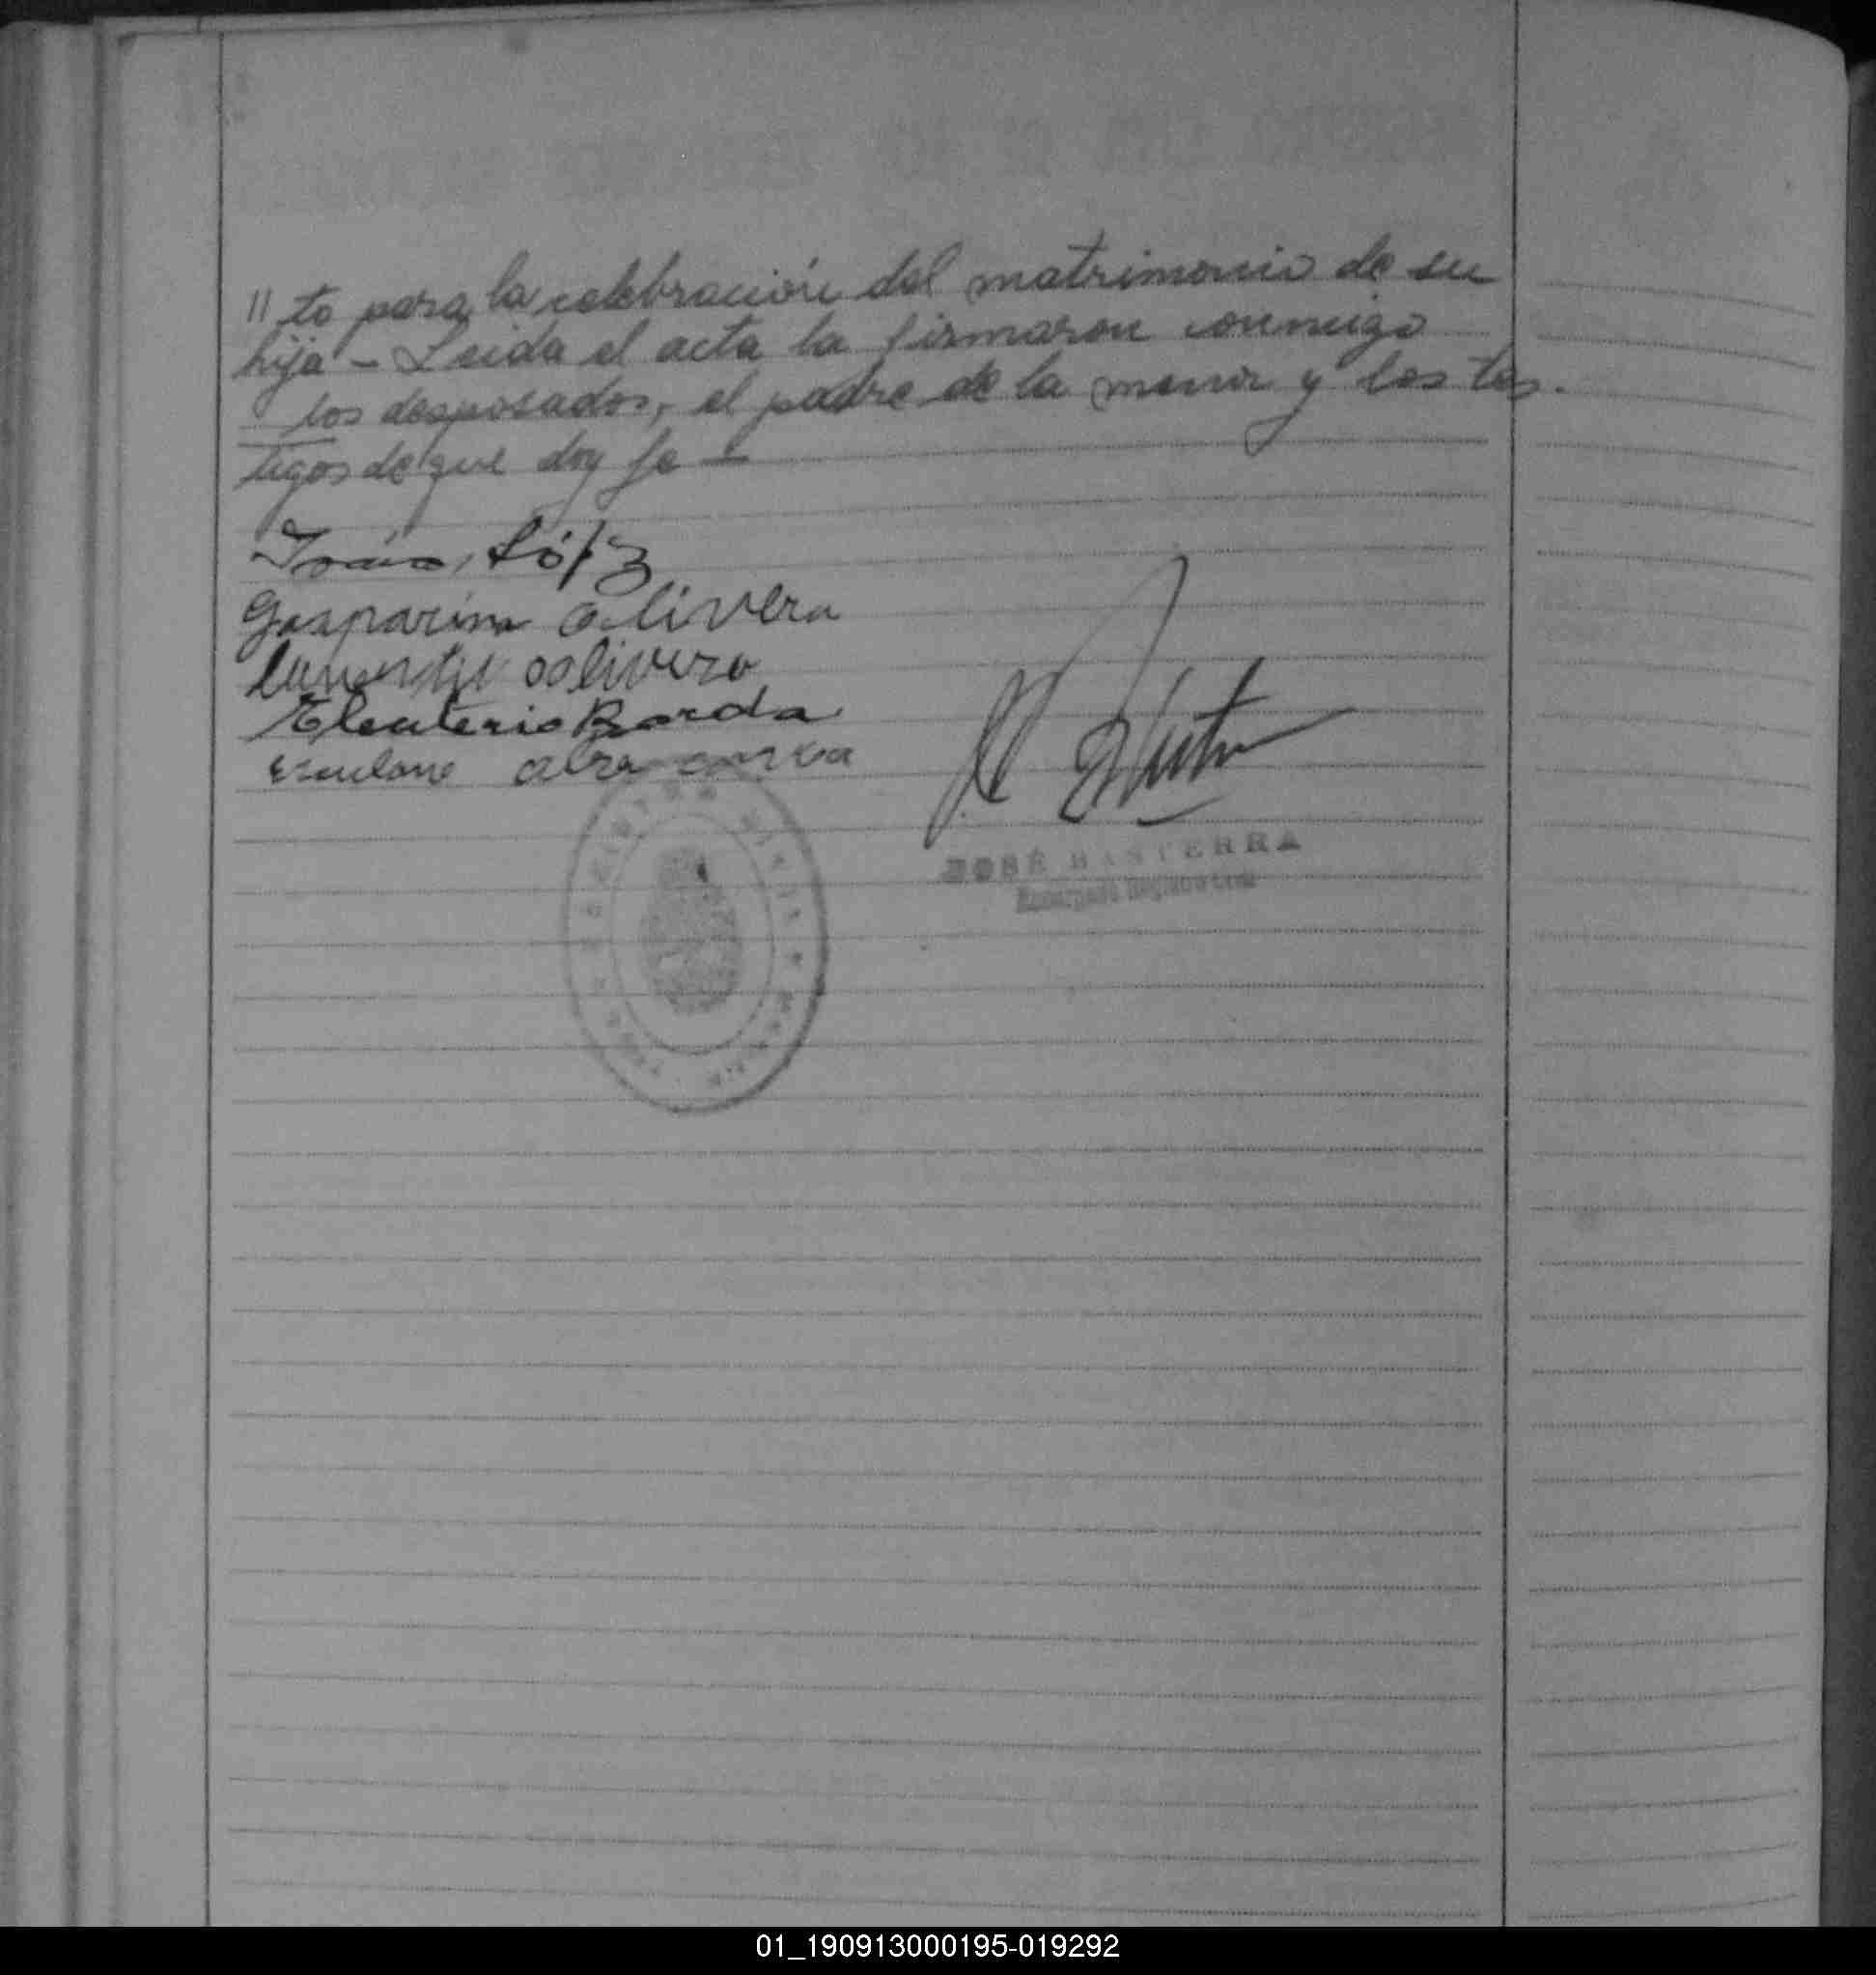 // to para la celebración del matrimonio de su
hija - Leida el acta la firmaron conmigo
los desposados, el padre de la menor y los tes-
tigos de que doy fe -
López
Gasparina Olivera
Olivera
Eleuterio Borda
JOSÉ BASTERRA
Encargado Registro Civil
01_190913000195-019292